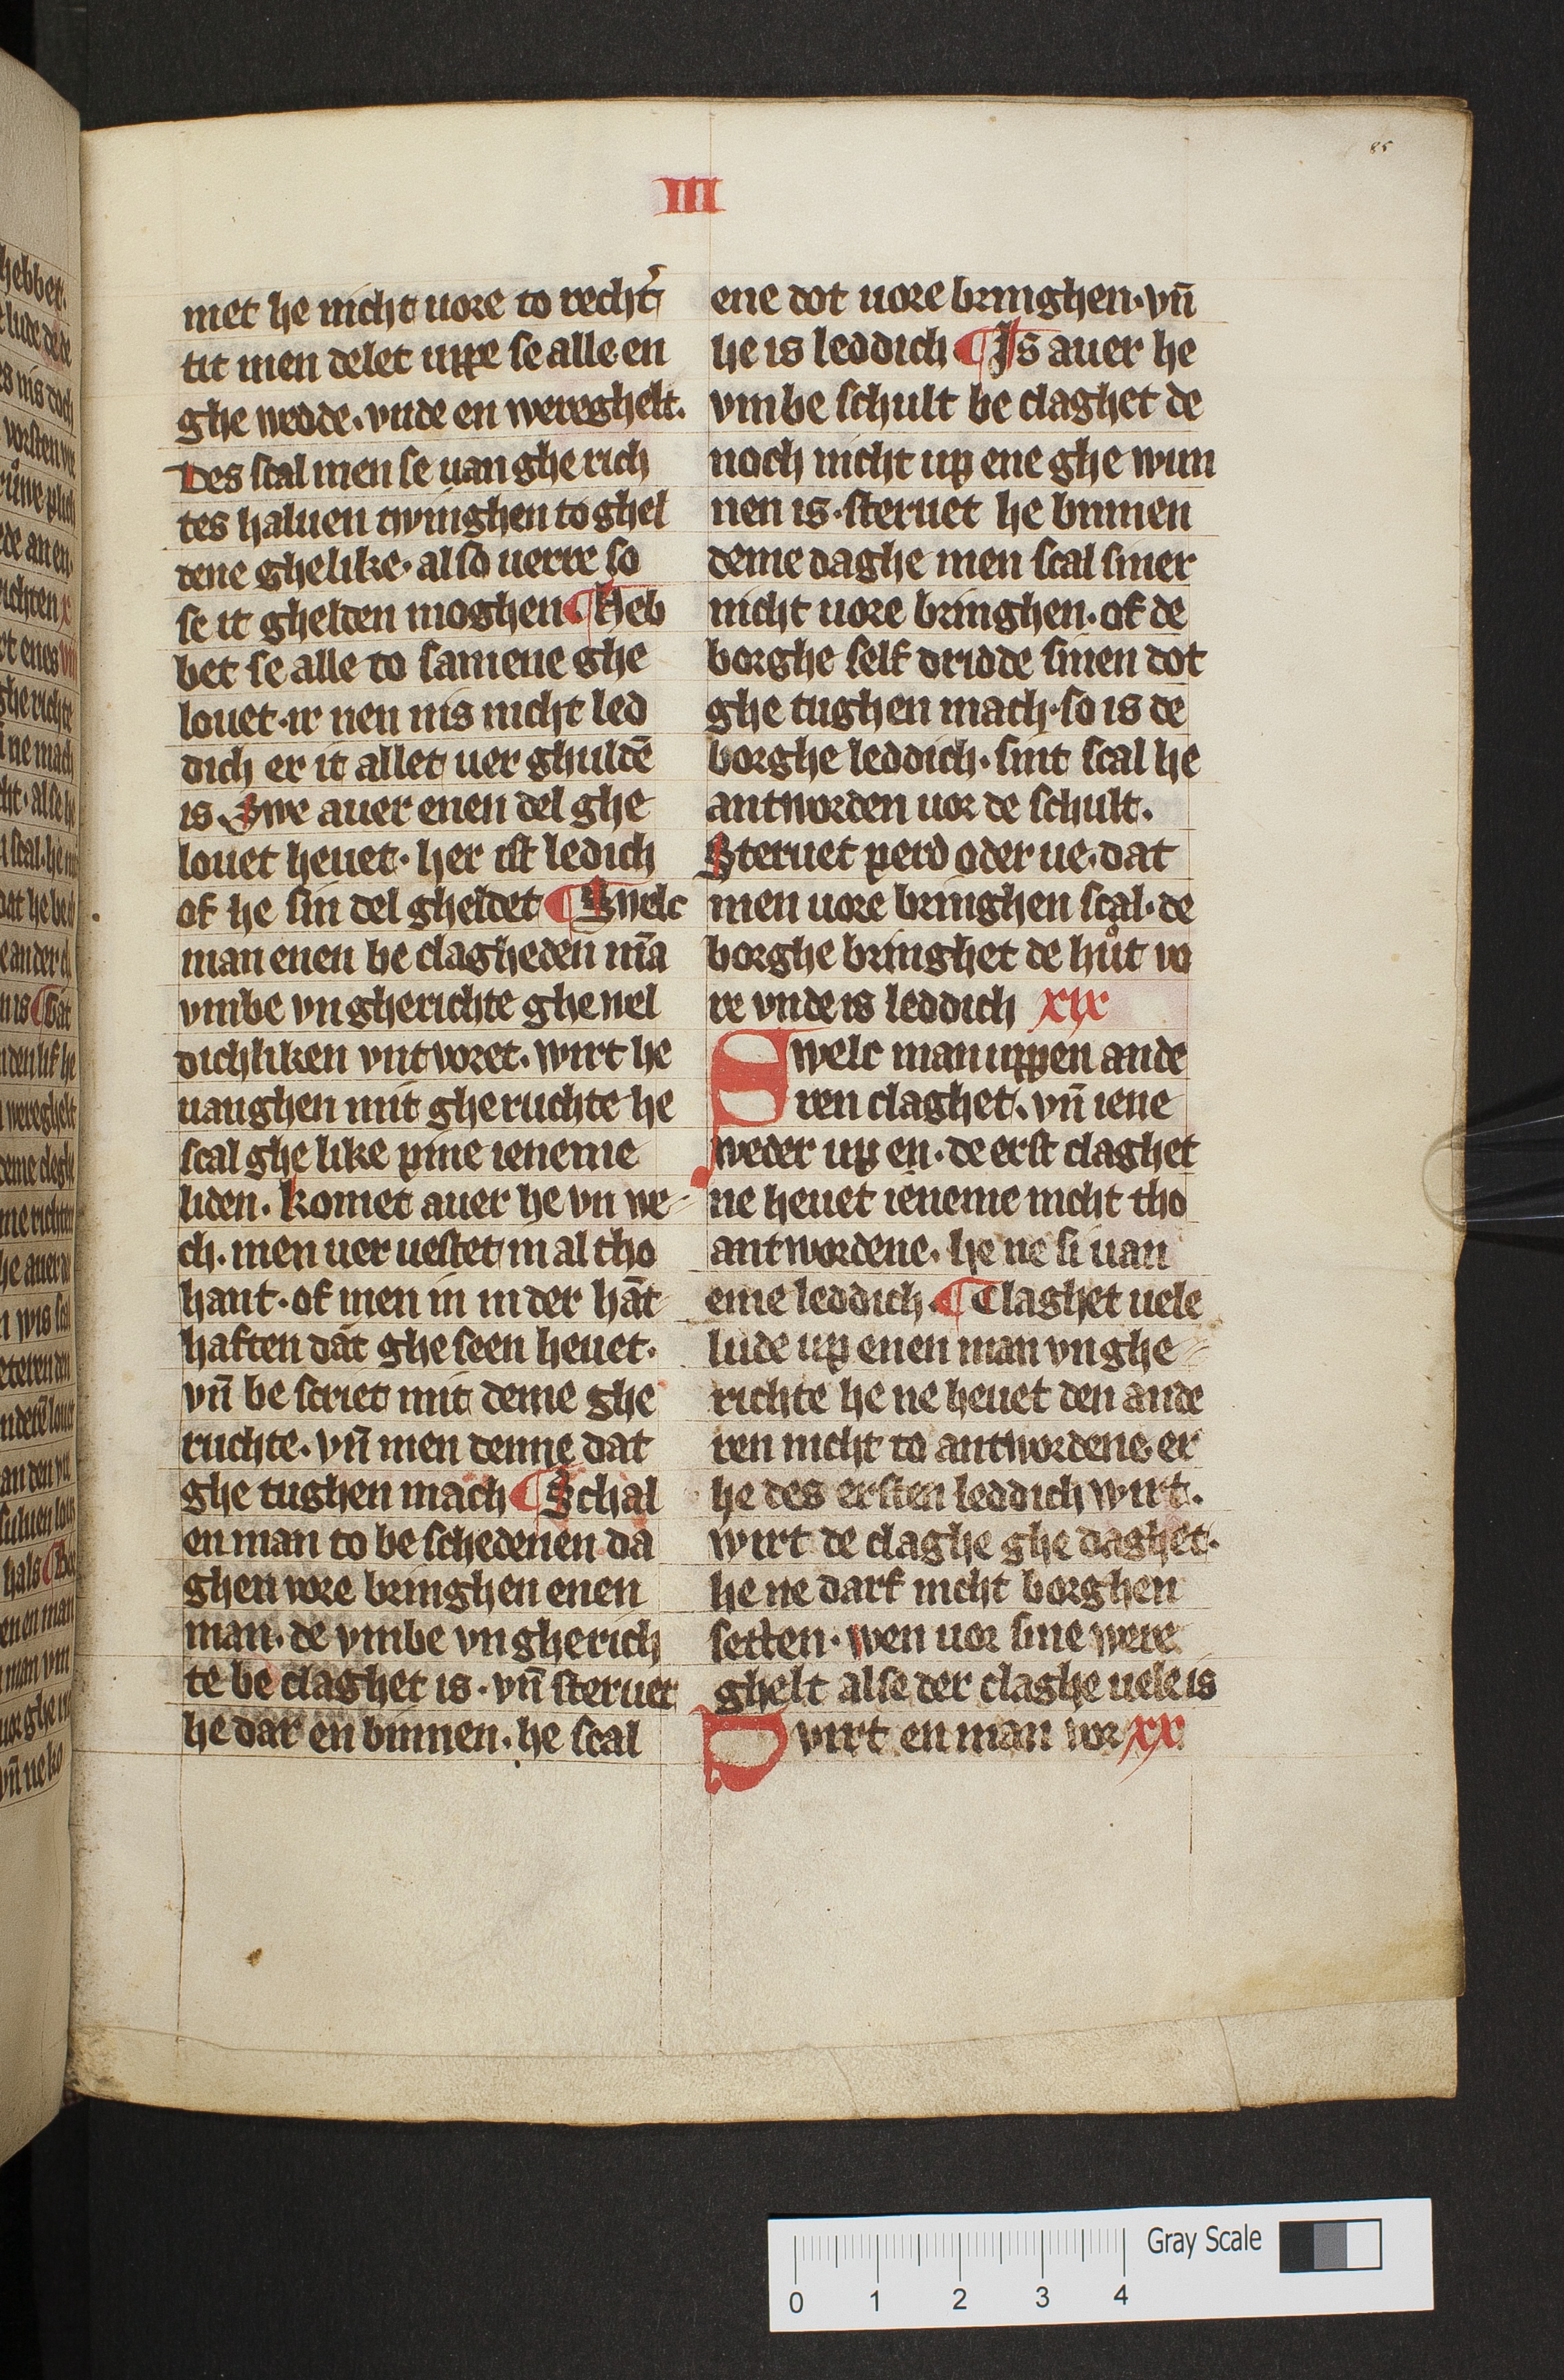 85
III
met he nicht uore to recht᷑
tit men delet uppe se alle en
ghe wedde. vnde en wereghelt.
Des scal men se uan ghe rich
tes haluen twinghen to ghel
dene ghelike. also uerre so
se it ghelden moghen ¶ Heb
bet se alle to samene ghe
louet. ir nen nis nicht led
dich er it allet uer ghuldē
is. Swe auer enen del ghe
louet heuet. her ist ledich
of he sin del gheldet ¶ Swelc
man enen be clagheden mā
vmbe vngherichte ghewel
dichliken vntvoret. wirt he
uanghen mit gheruchte he
scal ghe like pine ieneme
liden. komet auer he vn we-
ch. men uer uestet in al tho
hant. of men in in der hāt
haften dāt ghe seen heuet.
vn̄ be scriet mit deme ghe
ruchte. vn̄ men denne dat
ghe tughen mach ¶ Schal
en man to be schedenen da
ghen vore bringhen enen
man. de vmbe vngherich
te be claghet is. vn̄ steruet
he dar en binnen. he scal
ene dot uore bringhen. vn̄
he is leddich ¶ Is auer he
vmbe schult be claghet de
noch nicht up ene ghe wun
nen is. steruet he binnen
deme daghe men scal siner
nicht uore bringhen. of de
borghe self dridde sinen dot
ghe tughen mach. so is de
borghe leddich. sint scal he
antworden uor de schult.
Steruet perd oder ue. dat
men uore bringhen scal. de
borghe bringhet de hůt vo
re vnde is leddich xix
Swelc man uppen ande
ren claghet. vn̄ iene
weder up en. de erst claghet
ne heuet ieneme nicht tho
antwordene. he ne si uan
eme leddich. ¶ Claghet uele
lude up enen man vnghe-
richte he ne heuet den ande
ren nicht to antwordene. er
he des ersten leddich wirt.
wirt de claghe ghe daghet.
he ne darf nicht borghen
setten. wen uor sine were
ghelt alse der claghe uele is
Dvirt en man vor xx
Gray Scale
0 1 2 3 4